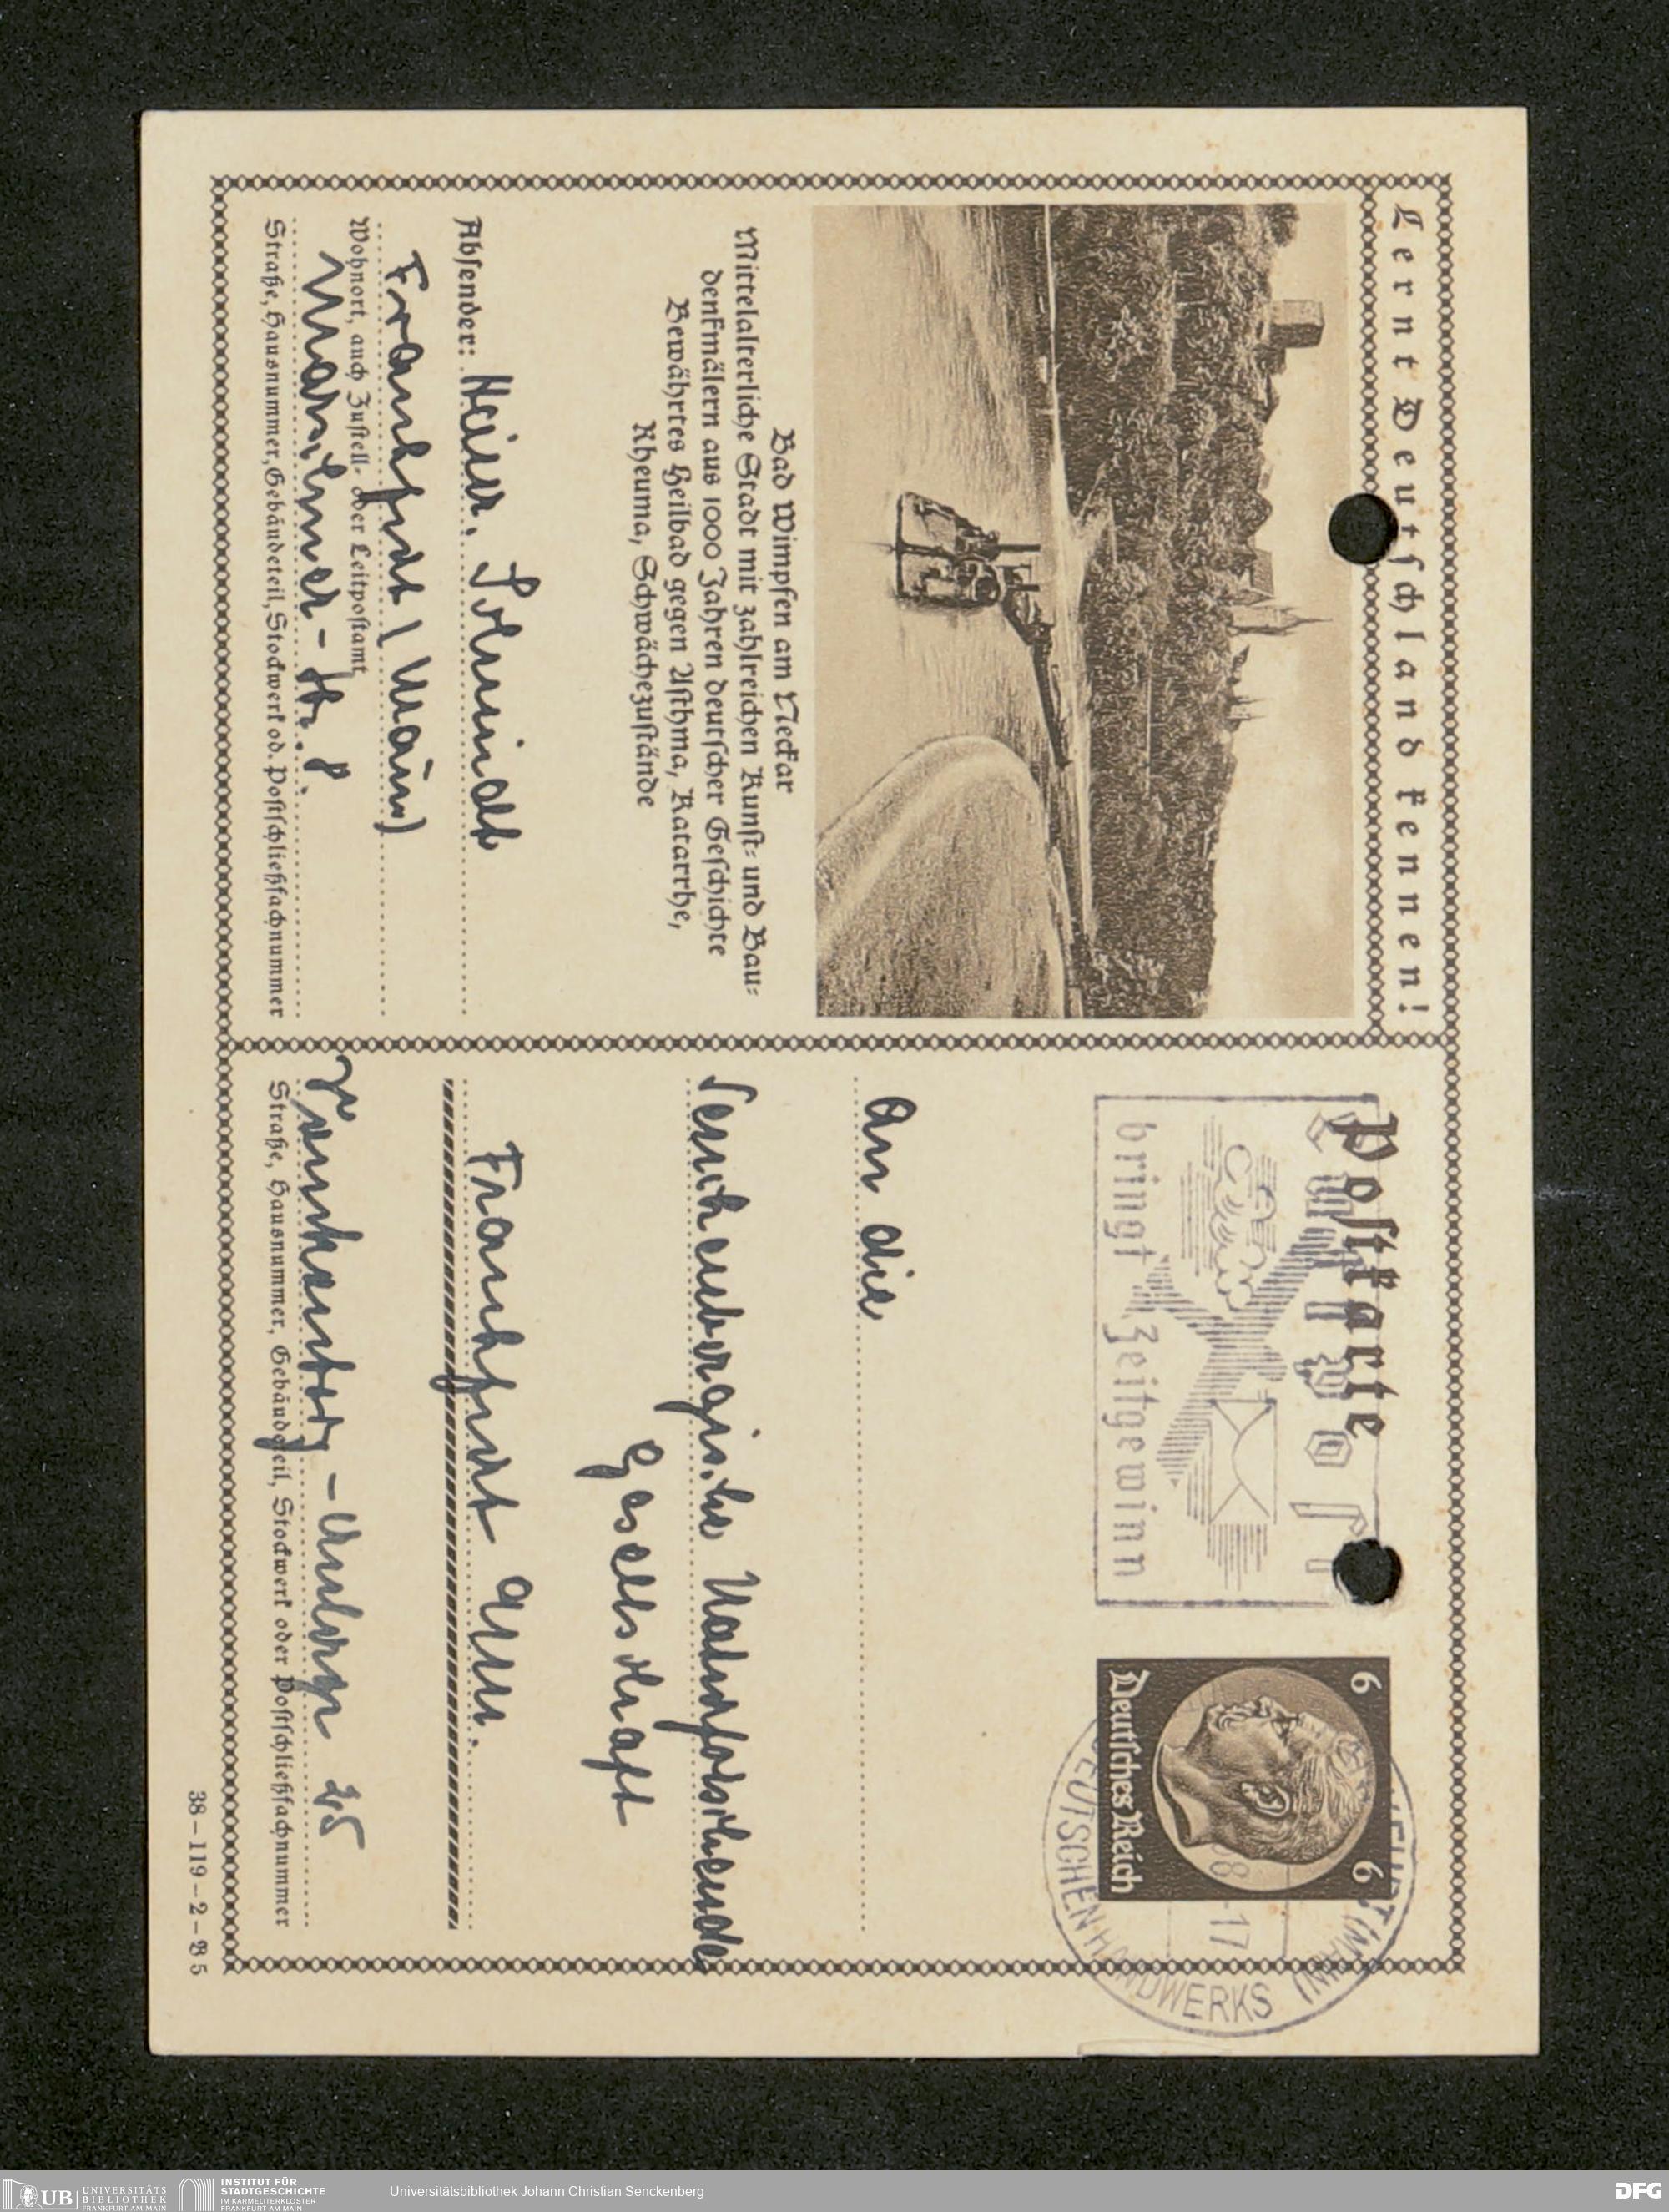 Lernt Deutschland kennen!
Bad Wimpfen am Neckar
Mittelalterliche Stadt mit zahlreichen Kunst- und Bau-
denkmälern aus 1000 Jahren deutscher Geschichte
Bewährtes Heilbad gegen Asthma, Katarrhe,
Rheuma, Schwächezustände
Absender: Heinr. Schmidt
Frankfurt (Main)
Wohnort, auch Zustell- oder Leitpostamt
Straße, Hausnummer, Gebäudeteil, Stockwerk od. Postschließfachnummer
Postkarte
Luftpost
bringt Zeitgewinn
6 6
Deutsches Reich
(MAIN)
DEUTSCHEN HANDWERKS
17
An die
Senckenbergische Naturforschende
Gesellschaft
Frankfurt a/M.
Viktoria-Allee
Straße, Hausnummer, Gebäudeteil, Stockwerk oder Postschließfachnummer
38-119-2-B5
UB UNIVERSITÄTS
BIBLIOTHEK
FRANKFURT AM MAIN
INSTITUT FÜR
STADTGESCHICHTE
IM KARMELITERKLOSTER
FRANKFURT AM MAIN
Universitätsbibliothek Johann Christian Senckenberg
DFG